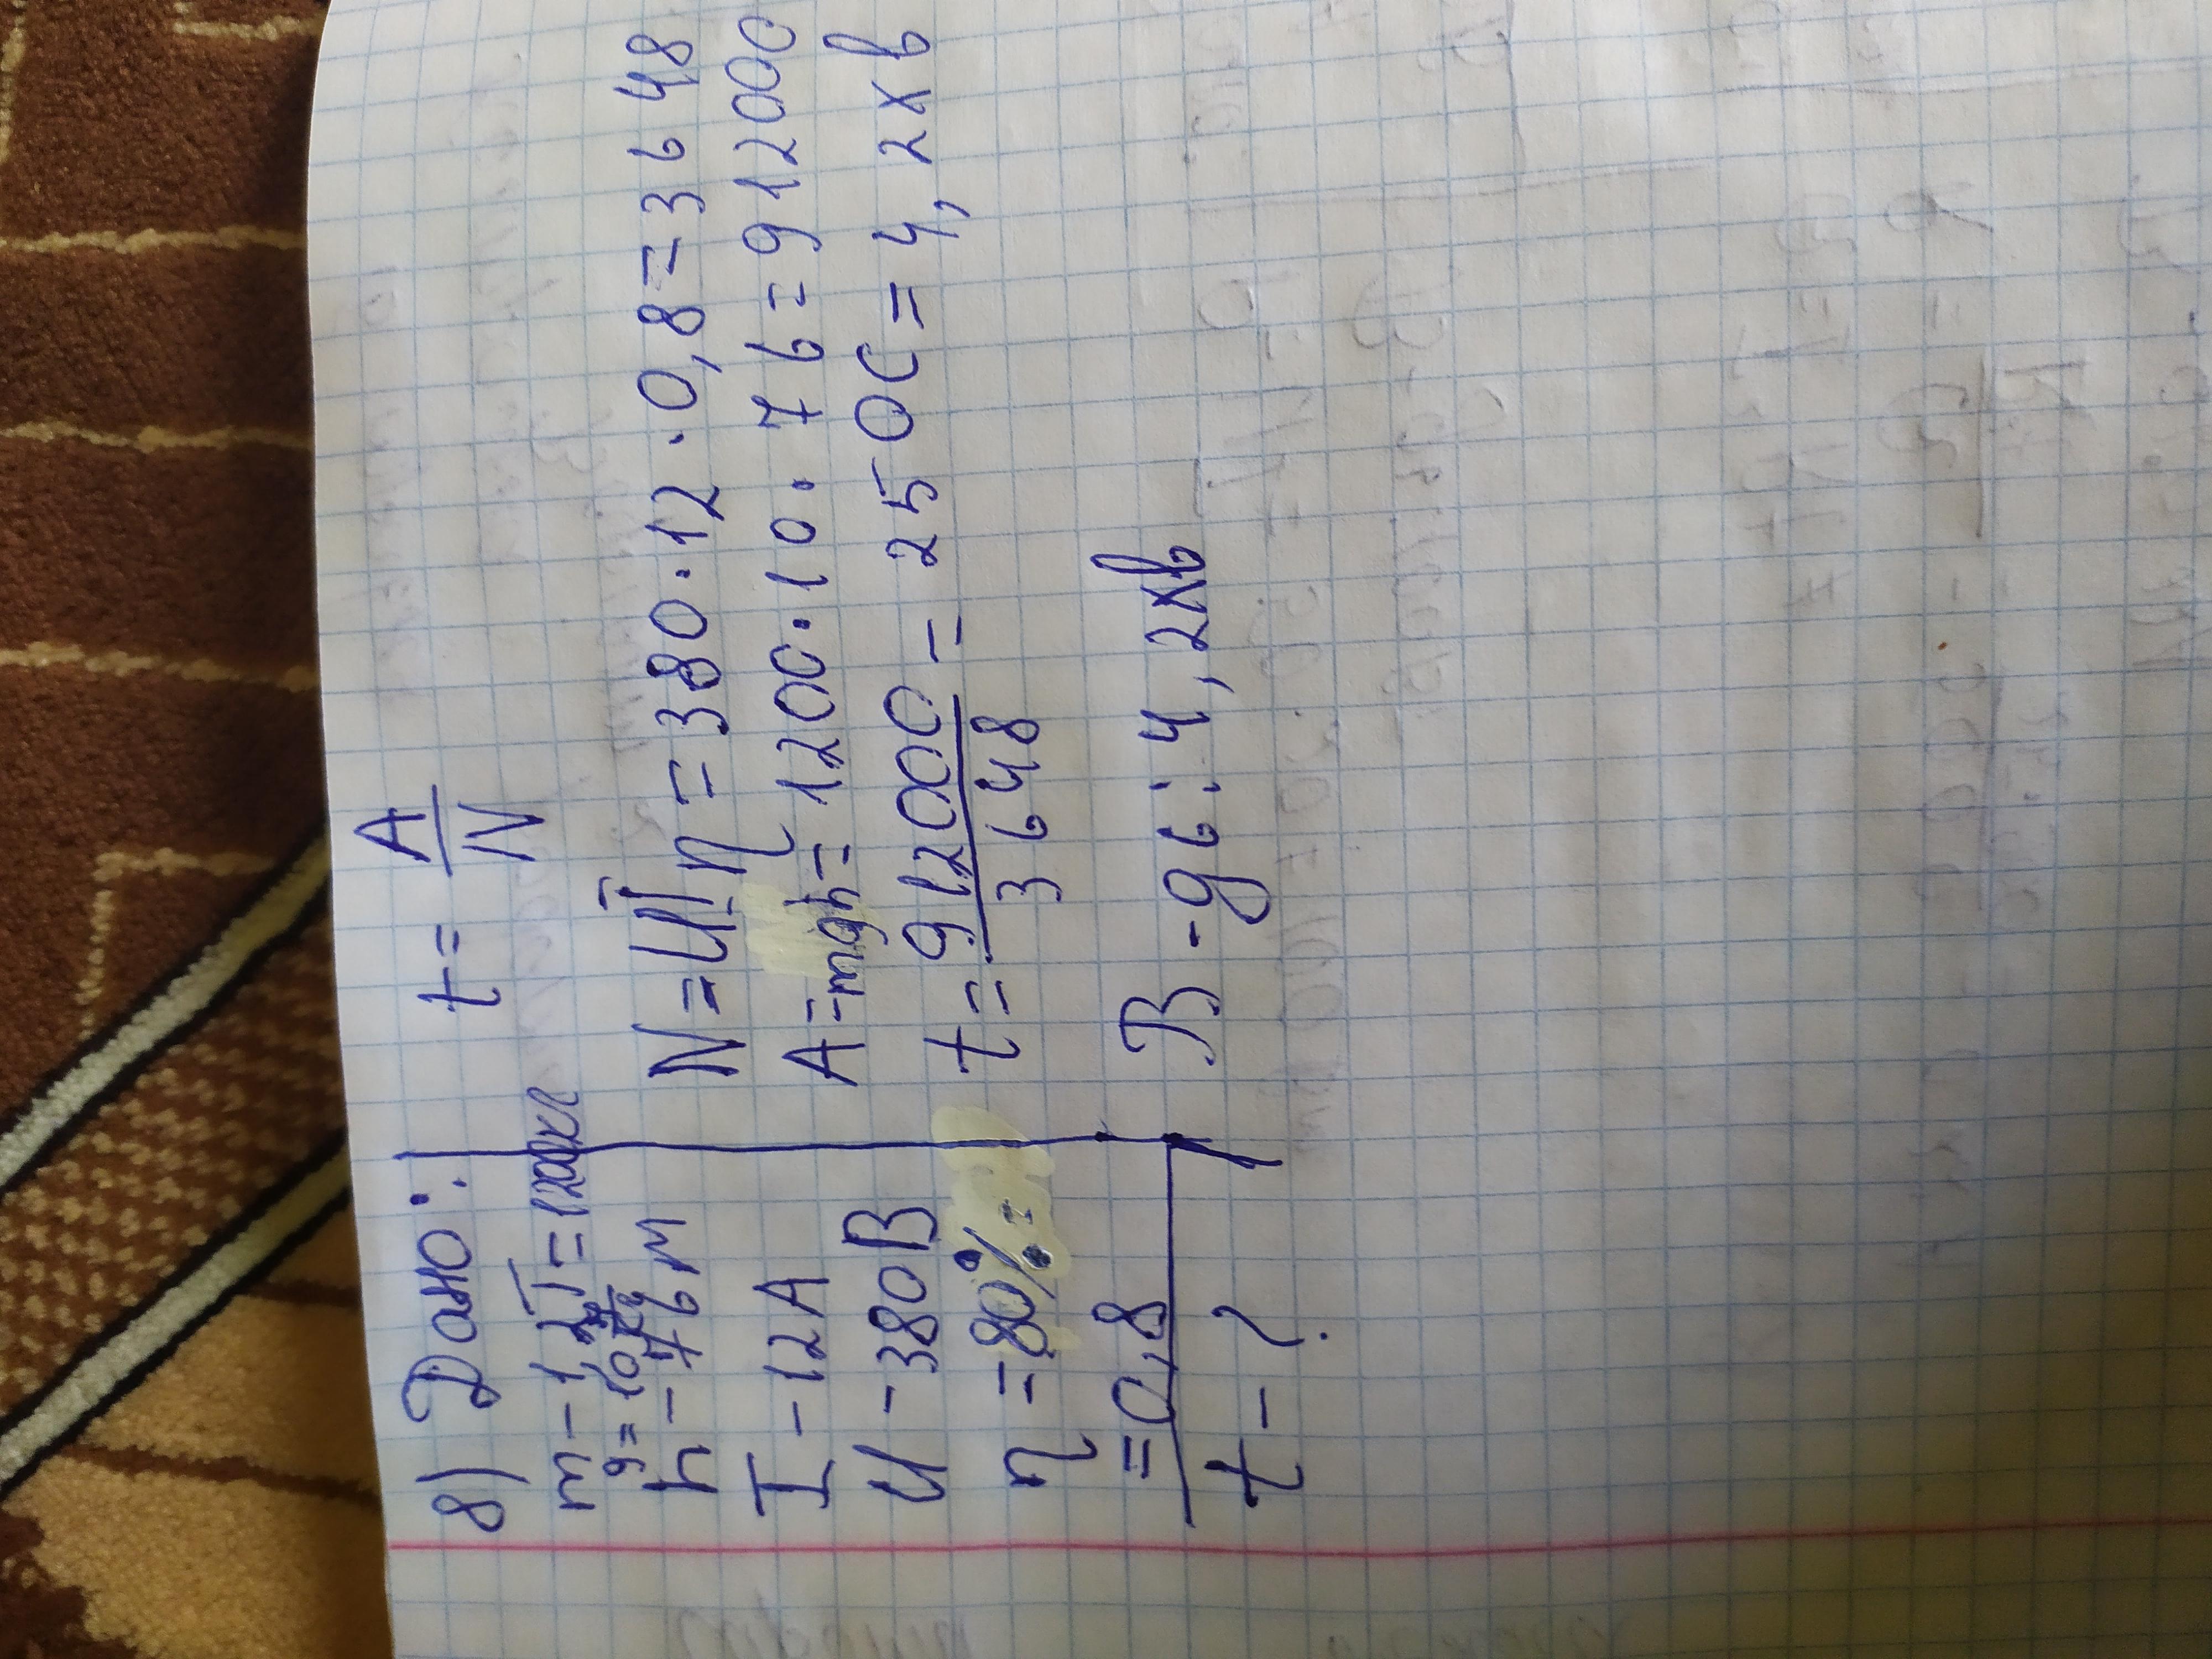 8) Дано:
m - 1,2т = 1200кг
g = 10
h - 76 м
I - 12А
U - 380В
η = 80% =
= 0,8
t - ?
t = A/N
N = UIη = 380 · 12 · 0,8 = 3648
A = mgh = 1200 · 10 · 76 = 912000
t = 912000/3648 = 250с = 4,2хв
В-дь: 4,2хв